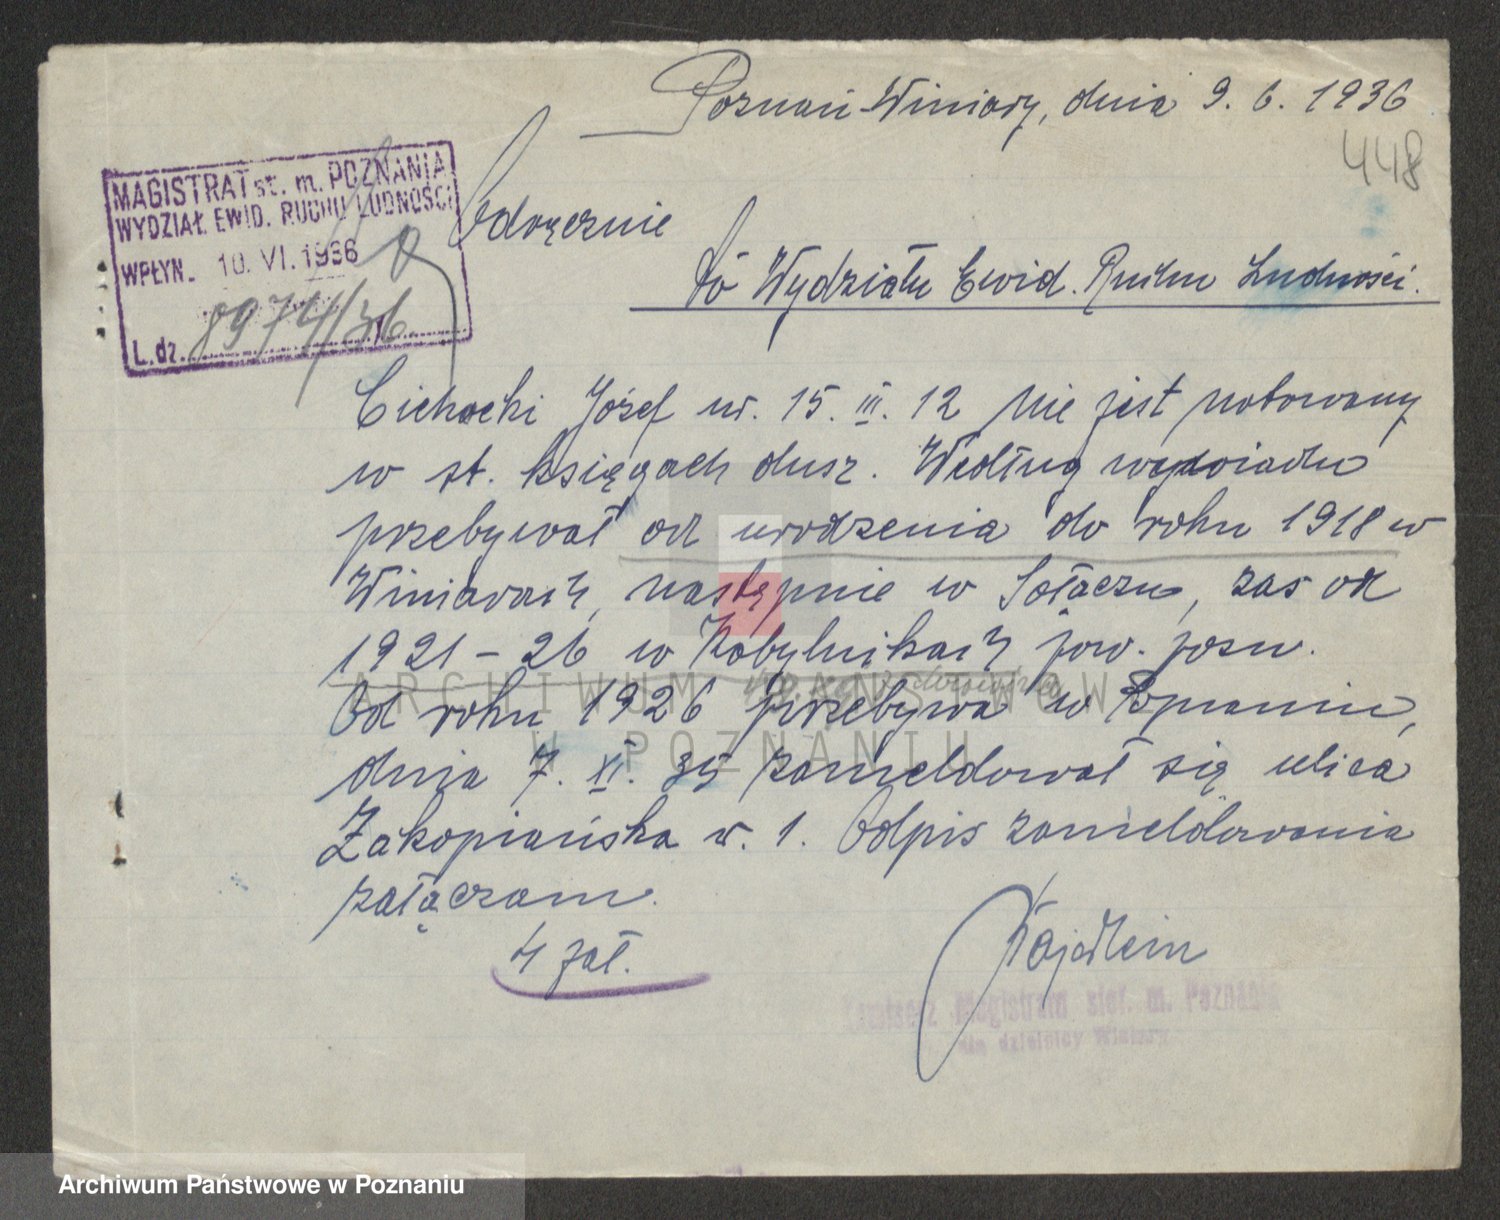 Poznań-Winiary, dnia 9. 6. 1936
448
MAGISTRAT st. m. POZNANIA
WYDZIAŁ EWID. RUCHU LUDNOŚCI
WPŁYN. 10. VI. 1936
L. dz. 8974/36
Odręcznie
do Wydziału Ewid. Ruchu Ludności.
Cichocki Józef ur. 15. III. 12 nie jest notowany
w st. księgach dusz. Według wywiadu
przebywał od urodzenia do roku 1918 w
Winiarach, następnie w Sołaczu, zaś od
1921 – 26 w Kobylnikach pow. pozn.
Od roku 1926 przebywa w Poznaniu,
dnia 7. XI. 35 zameldował się ulica
Zakopiańska nr. 1. Odpis zameldowania
załączam.
4 zał.
Komisarz Magistratu stoł. m. Poznania
dla dzielnicy Winiary
ARCHIWUM PAŃSTWOWE
W POZNANIU
Archiwum Państwowe w Poznaniu